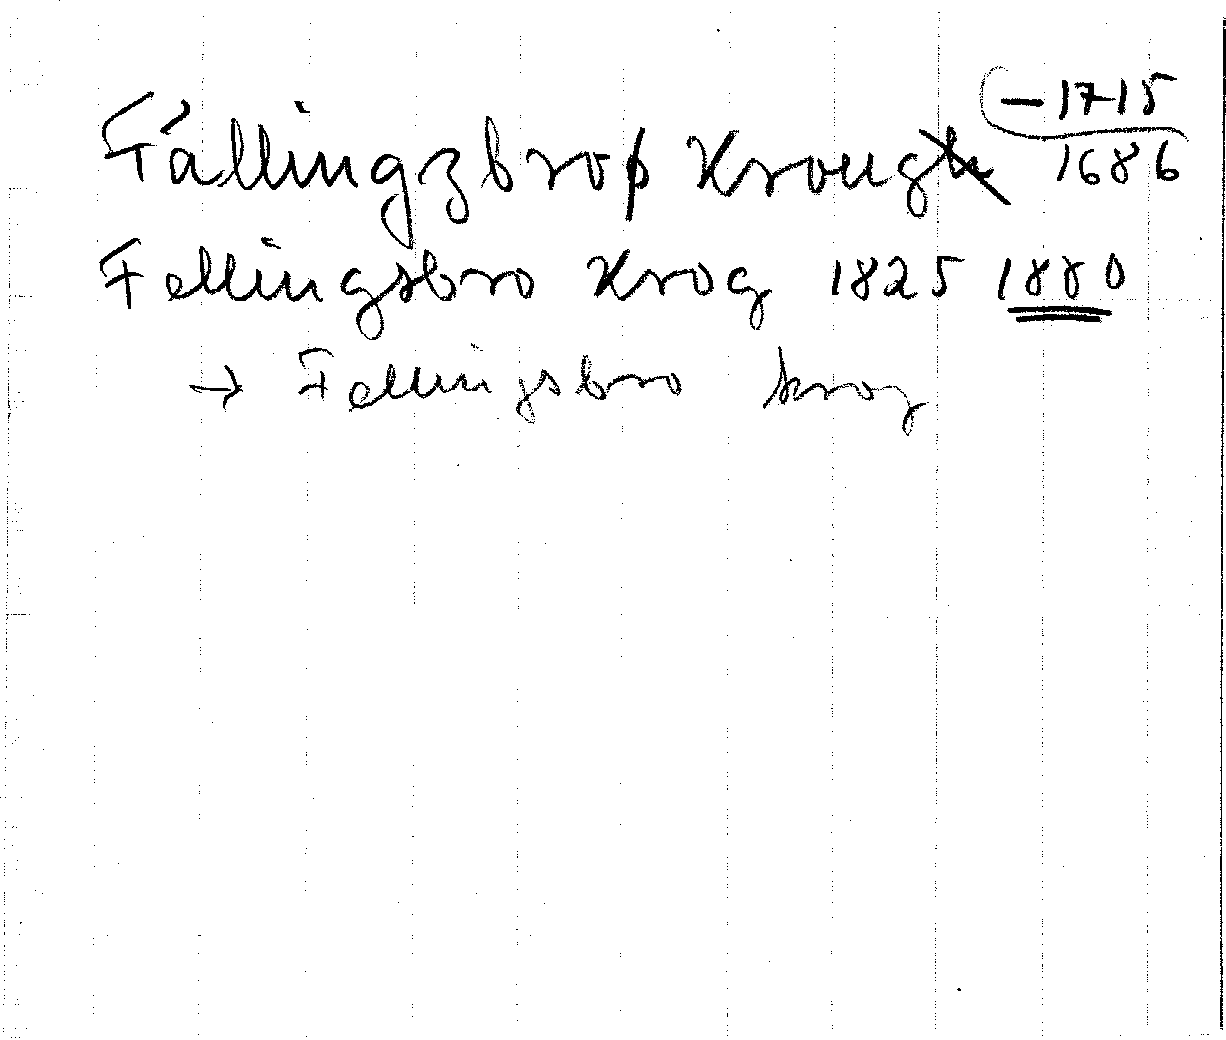 – 1715
Fällingzbroß Kroug 1686
Fellingsbro Krog 1825 1880
→ Fellingsbro krog